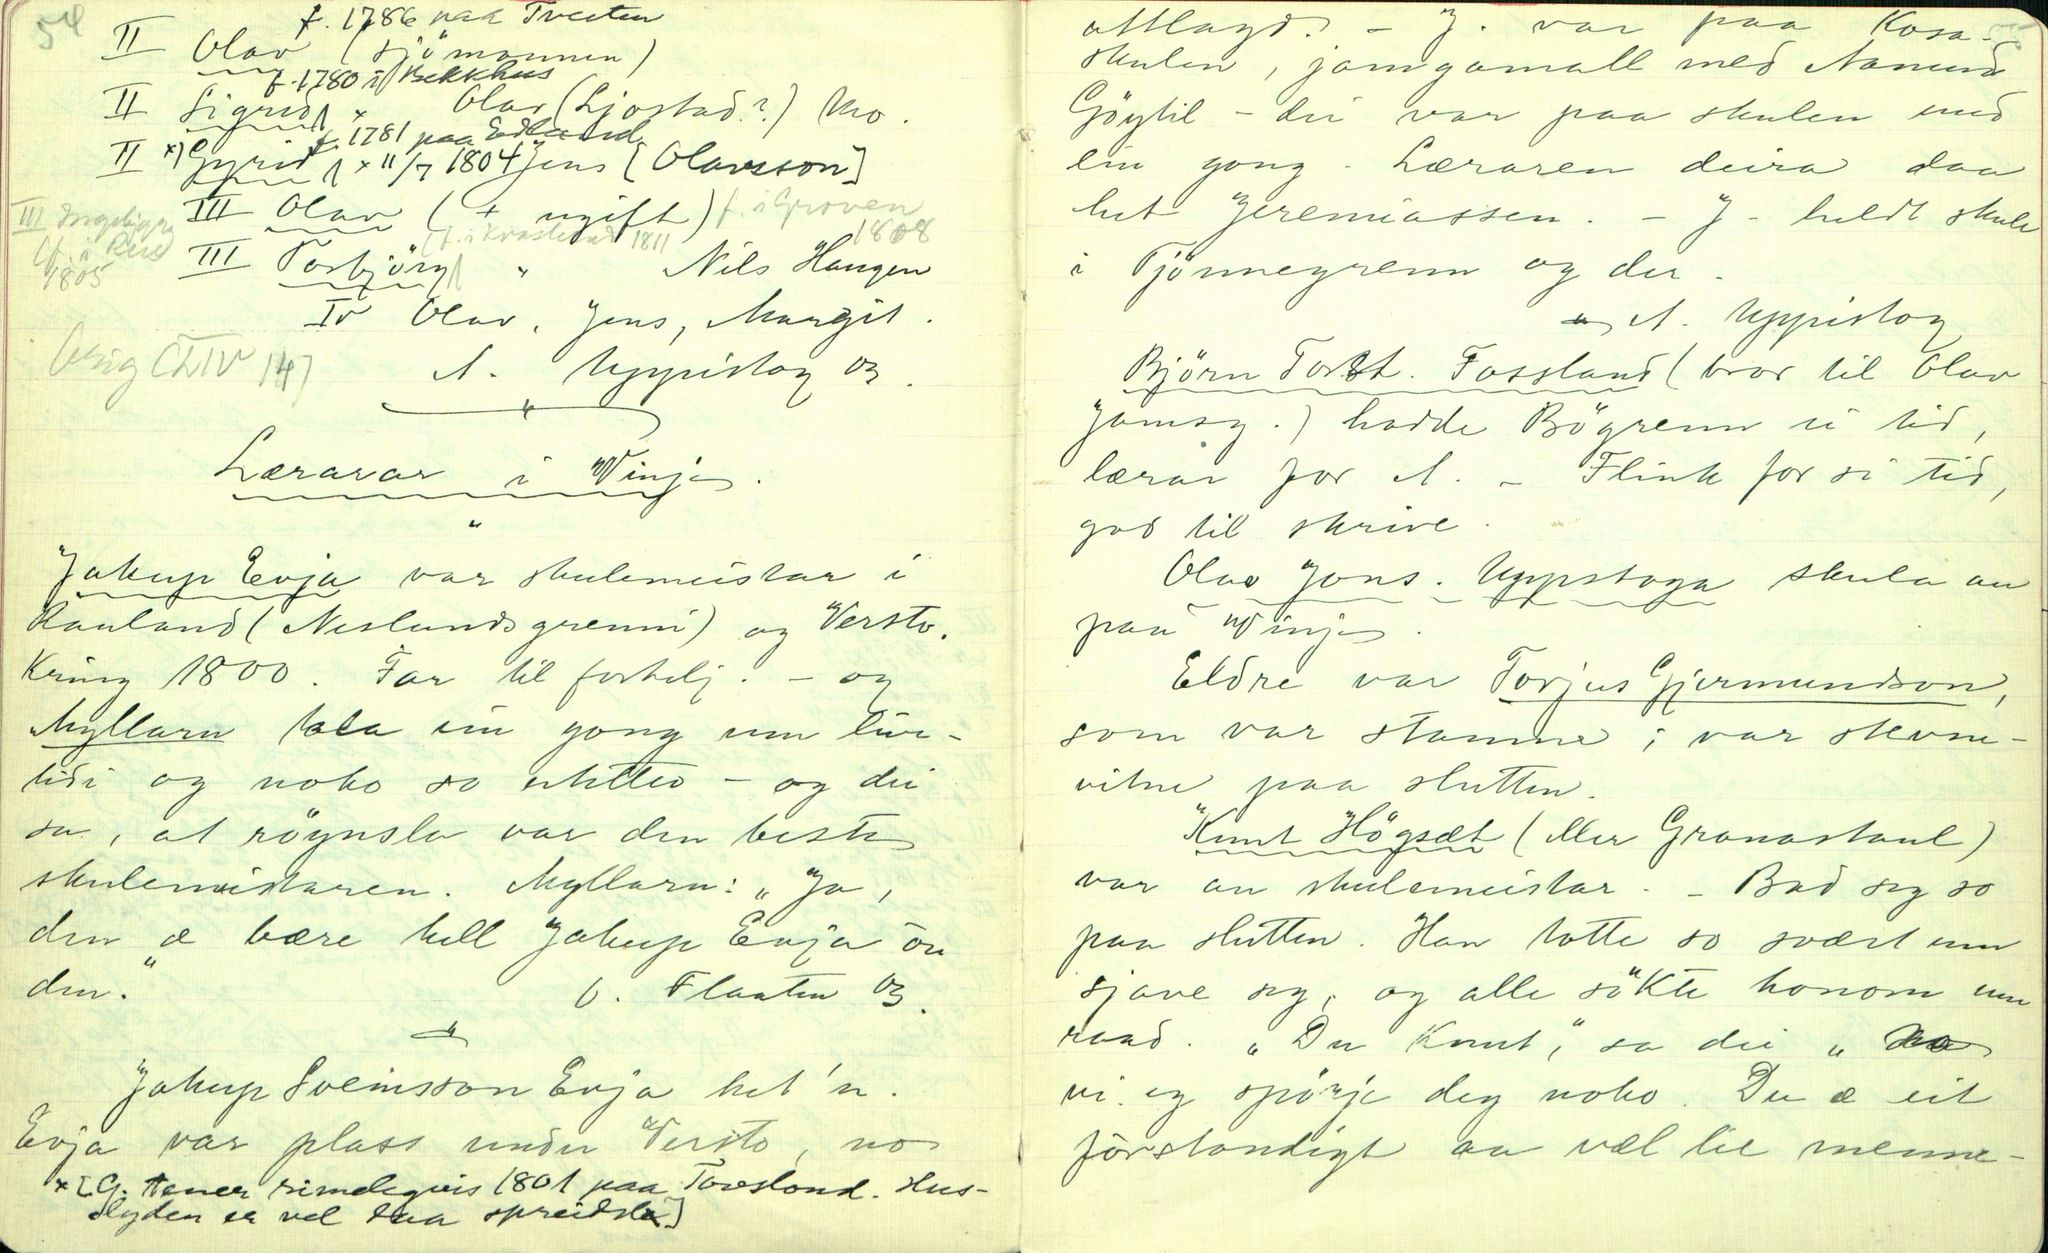 54
f. 1786 paa Tveiten
II Olav (sjömannen)
f. 1780 i Bekkhus
II Sigrid × Olav (Ljostad?) Mo.
f. 1781 paa Edland
II ×) Gyrid × 11/7 1804 Jens [Olavsson]
III Olav (+ ugift) f. i Groven 1808
III Ingebjørg
(f. i
1805
(f. i Kvaaland 1811
III Torbjörg " Nils Haugen
IV Olav, Jens, Margit.
Orig CLIV 147
A. Uppistog og.
Lærarar i Vinje.
Jakup Evja var skulemeistar i
Rauland (Neslandsgrenni) og Versto.
Kring 1800. Far til forkelj. – og
Myllarn tala ein gong um live-
tidi og noko so etter – og dei
sa, at röynsla var den beste
skulemeistaren. Myllarn: „Ja,
den æ bære hell Jakup Evja òu
den." O. Flaaten og.
Jakup Sveinsson Evja het 'n.
Evja var plass under Versto, no
×[G. tener rimelegvis 1801 paa Torsland. Hus-
lyden er vel daa spreidde]
attlagd. – J. var paa Kosa-
skulen, jamgamall med Aamund
Göytil – dei var paa skulen med
ein gong. Læraren deira daa
het Jeremiassen. – J. heldt skule
i Tjönnegrenn og der.
A. Uppistog
Björn Torst. Fossland (bror til Olav
Jamsg.) hadde Bögrenn ei tid,
lærar for A. – Flink for si tid,
god til skrive.
Olav Jons. Uppstoga skula au
paa Vinje.
Eldre var Torjus Gjermundson,
som var stamme; var stevne-
vitne paa slutten.
Knut Högsæt (eller Granastaul)
var au skulemeistar. – Bad seg so
paa slutten. Han totte so svært um
sjave seg, og alle sökte honom um
raad. „Du Knut," sa dei „no
vi eg spörje deg noko. Du æ eit
förstandigt aa væl lie menne-